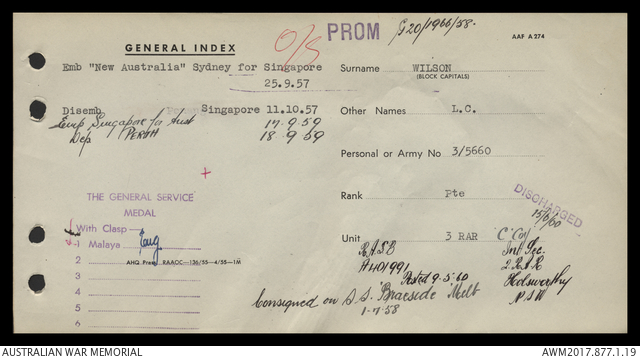 GENERAL INDEX
O/S
PROM
G20/1966/58.
AAF A 274
Emb "New Australia" Sydney for Singapore
25.9.57
Surname WILSON
(BLOCK CAPITALS)
Disemb Singapore 11.10.57
Emp, Singapore for Aust 17.9.59
Dep PERTH 18.9.59
Other Names L.C.
Personal or Army No 3/5660
THE GENERAL SERVICE
MEDAL
With Clasp
1 Malaya
2
3
4
5
6
AHQ Press RAAOC—136/55—4/55—1M
Rank Pte
DISCHARGED
15/6/60
Unit 3 RAR 'C' Coy
R.A.S.B
A401991
Posted 9-5-60
Int Sec.
2 R.A.R
Holsworthy
N.S.W
Consigned on S.S. Braeside Melb
1-7-58
AUSTRALIAN WAR MEMORIAL
AWM2017.877.1.19